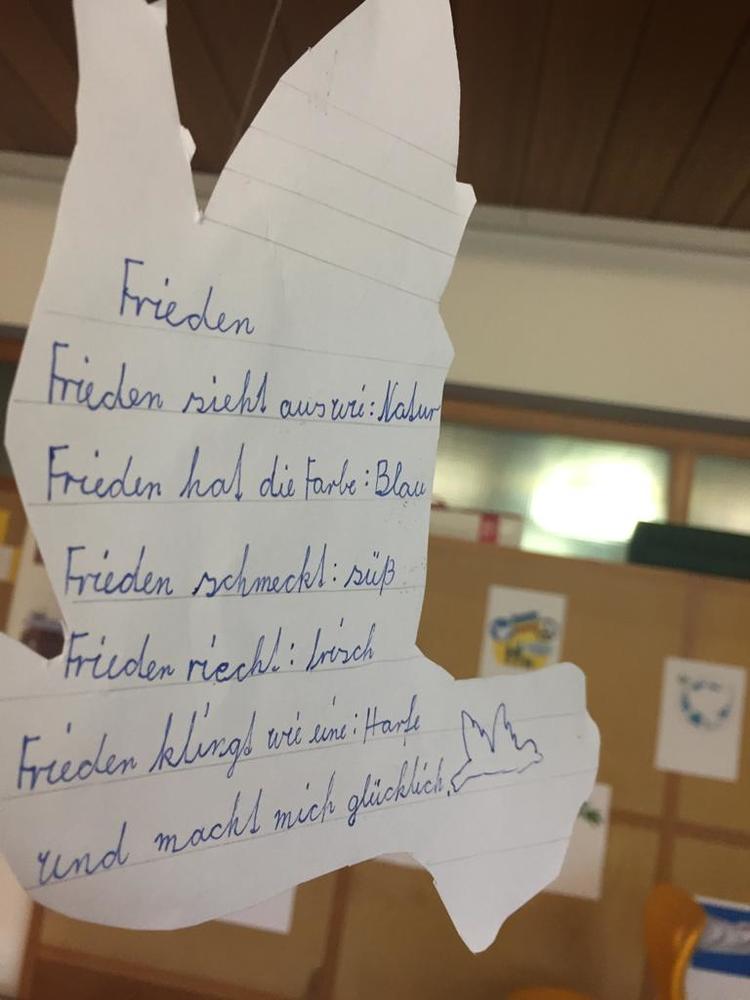 Frieden
Frieden sieht aus wi: Natur
Frieden hat die Farbe: Blau
Frieden schmeckt: süß
Frieden riecht: frisch
Frieden klingt wie eine: Harfe
und macht mich glücklich.